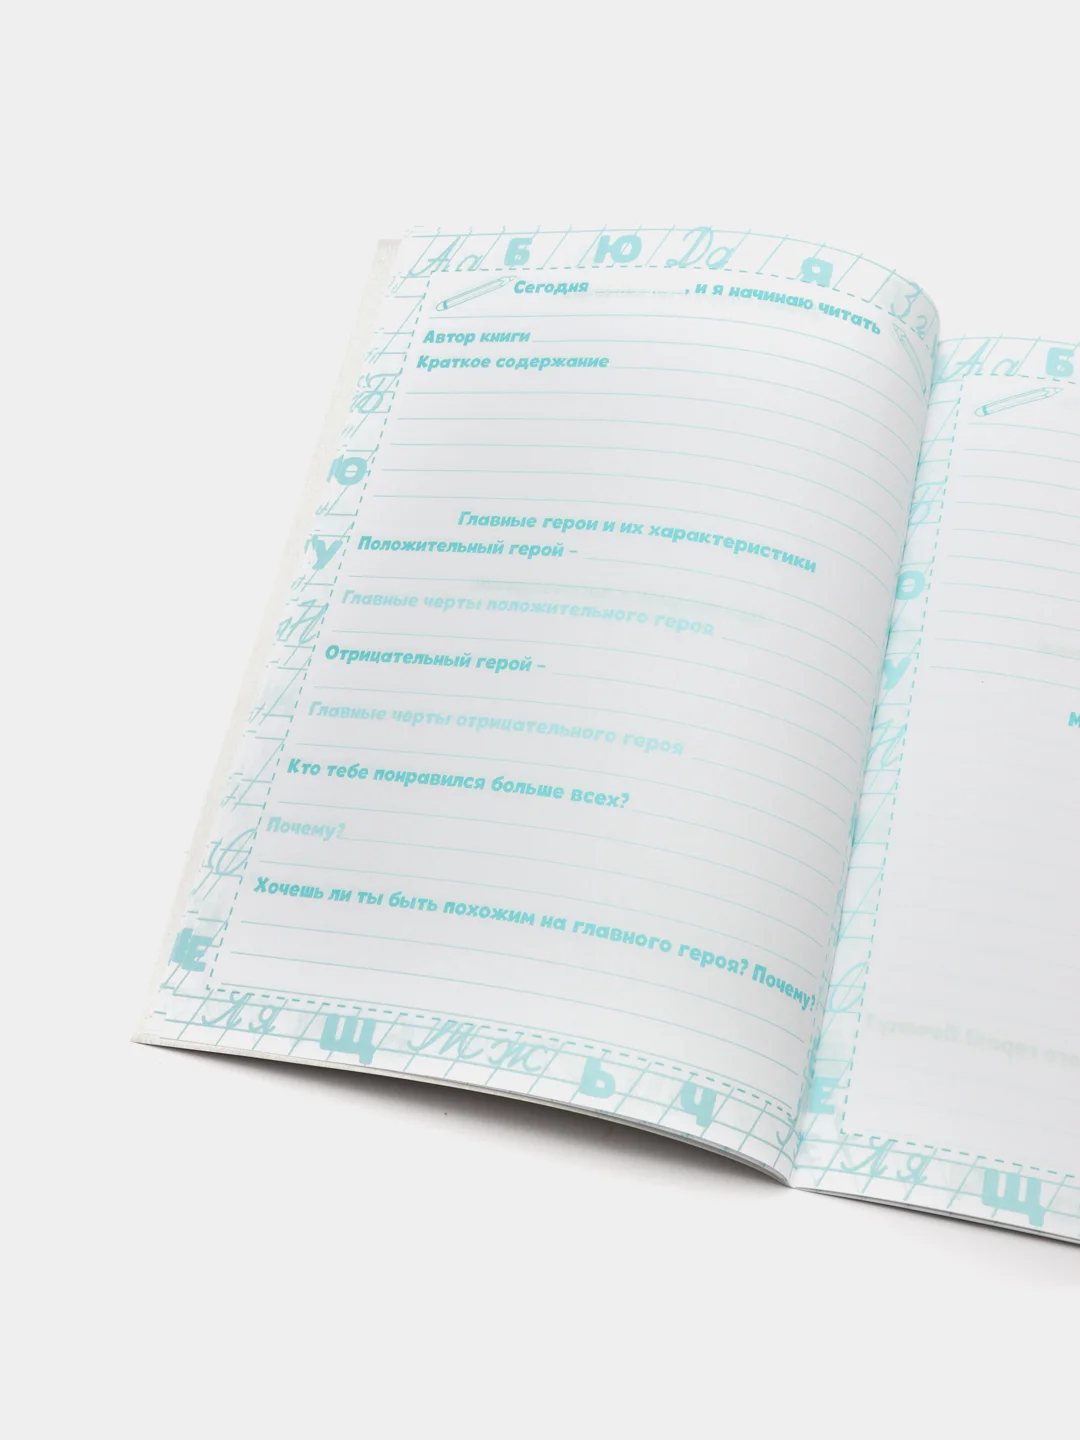 Аа Б Ю Да Я Зз
Сегодня ______, и я начинаю читать
Автор книги
Краткое содержание
Главные герои и их характеристики
Положительный герой –
Главные черты положительного героя
Отрицательный герой –
Главные черты отрицательного героя
Кто тебе понравился больше всех?
Почему?
Хочешь ли ты быть похожим на главного героя? Почему?
Ю
У
Е
Яя Щ Жж Ь Ч
Аа Б
О
У
Е
Яя Щ